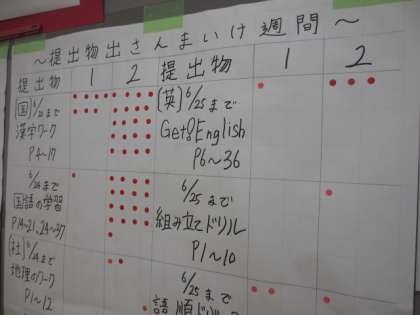 ～提出物出さんまいけ週間～
提出物 1 2 提出物 1 2
(国)6/21まで
漢字ワーク
P4～17
6/26まで
国語の学習
P14～21、24～37
(社)6/24まで
地理のワーク
P1～12
(英)6/25まで
Get!!English
P6～36
6/25まで
組み立てドリル
P1～10
6/25まで
語順ドリル